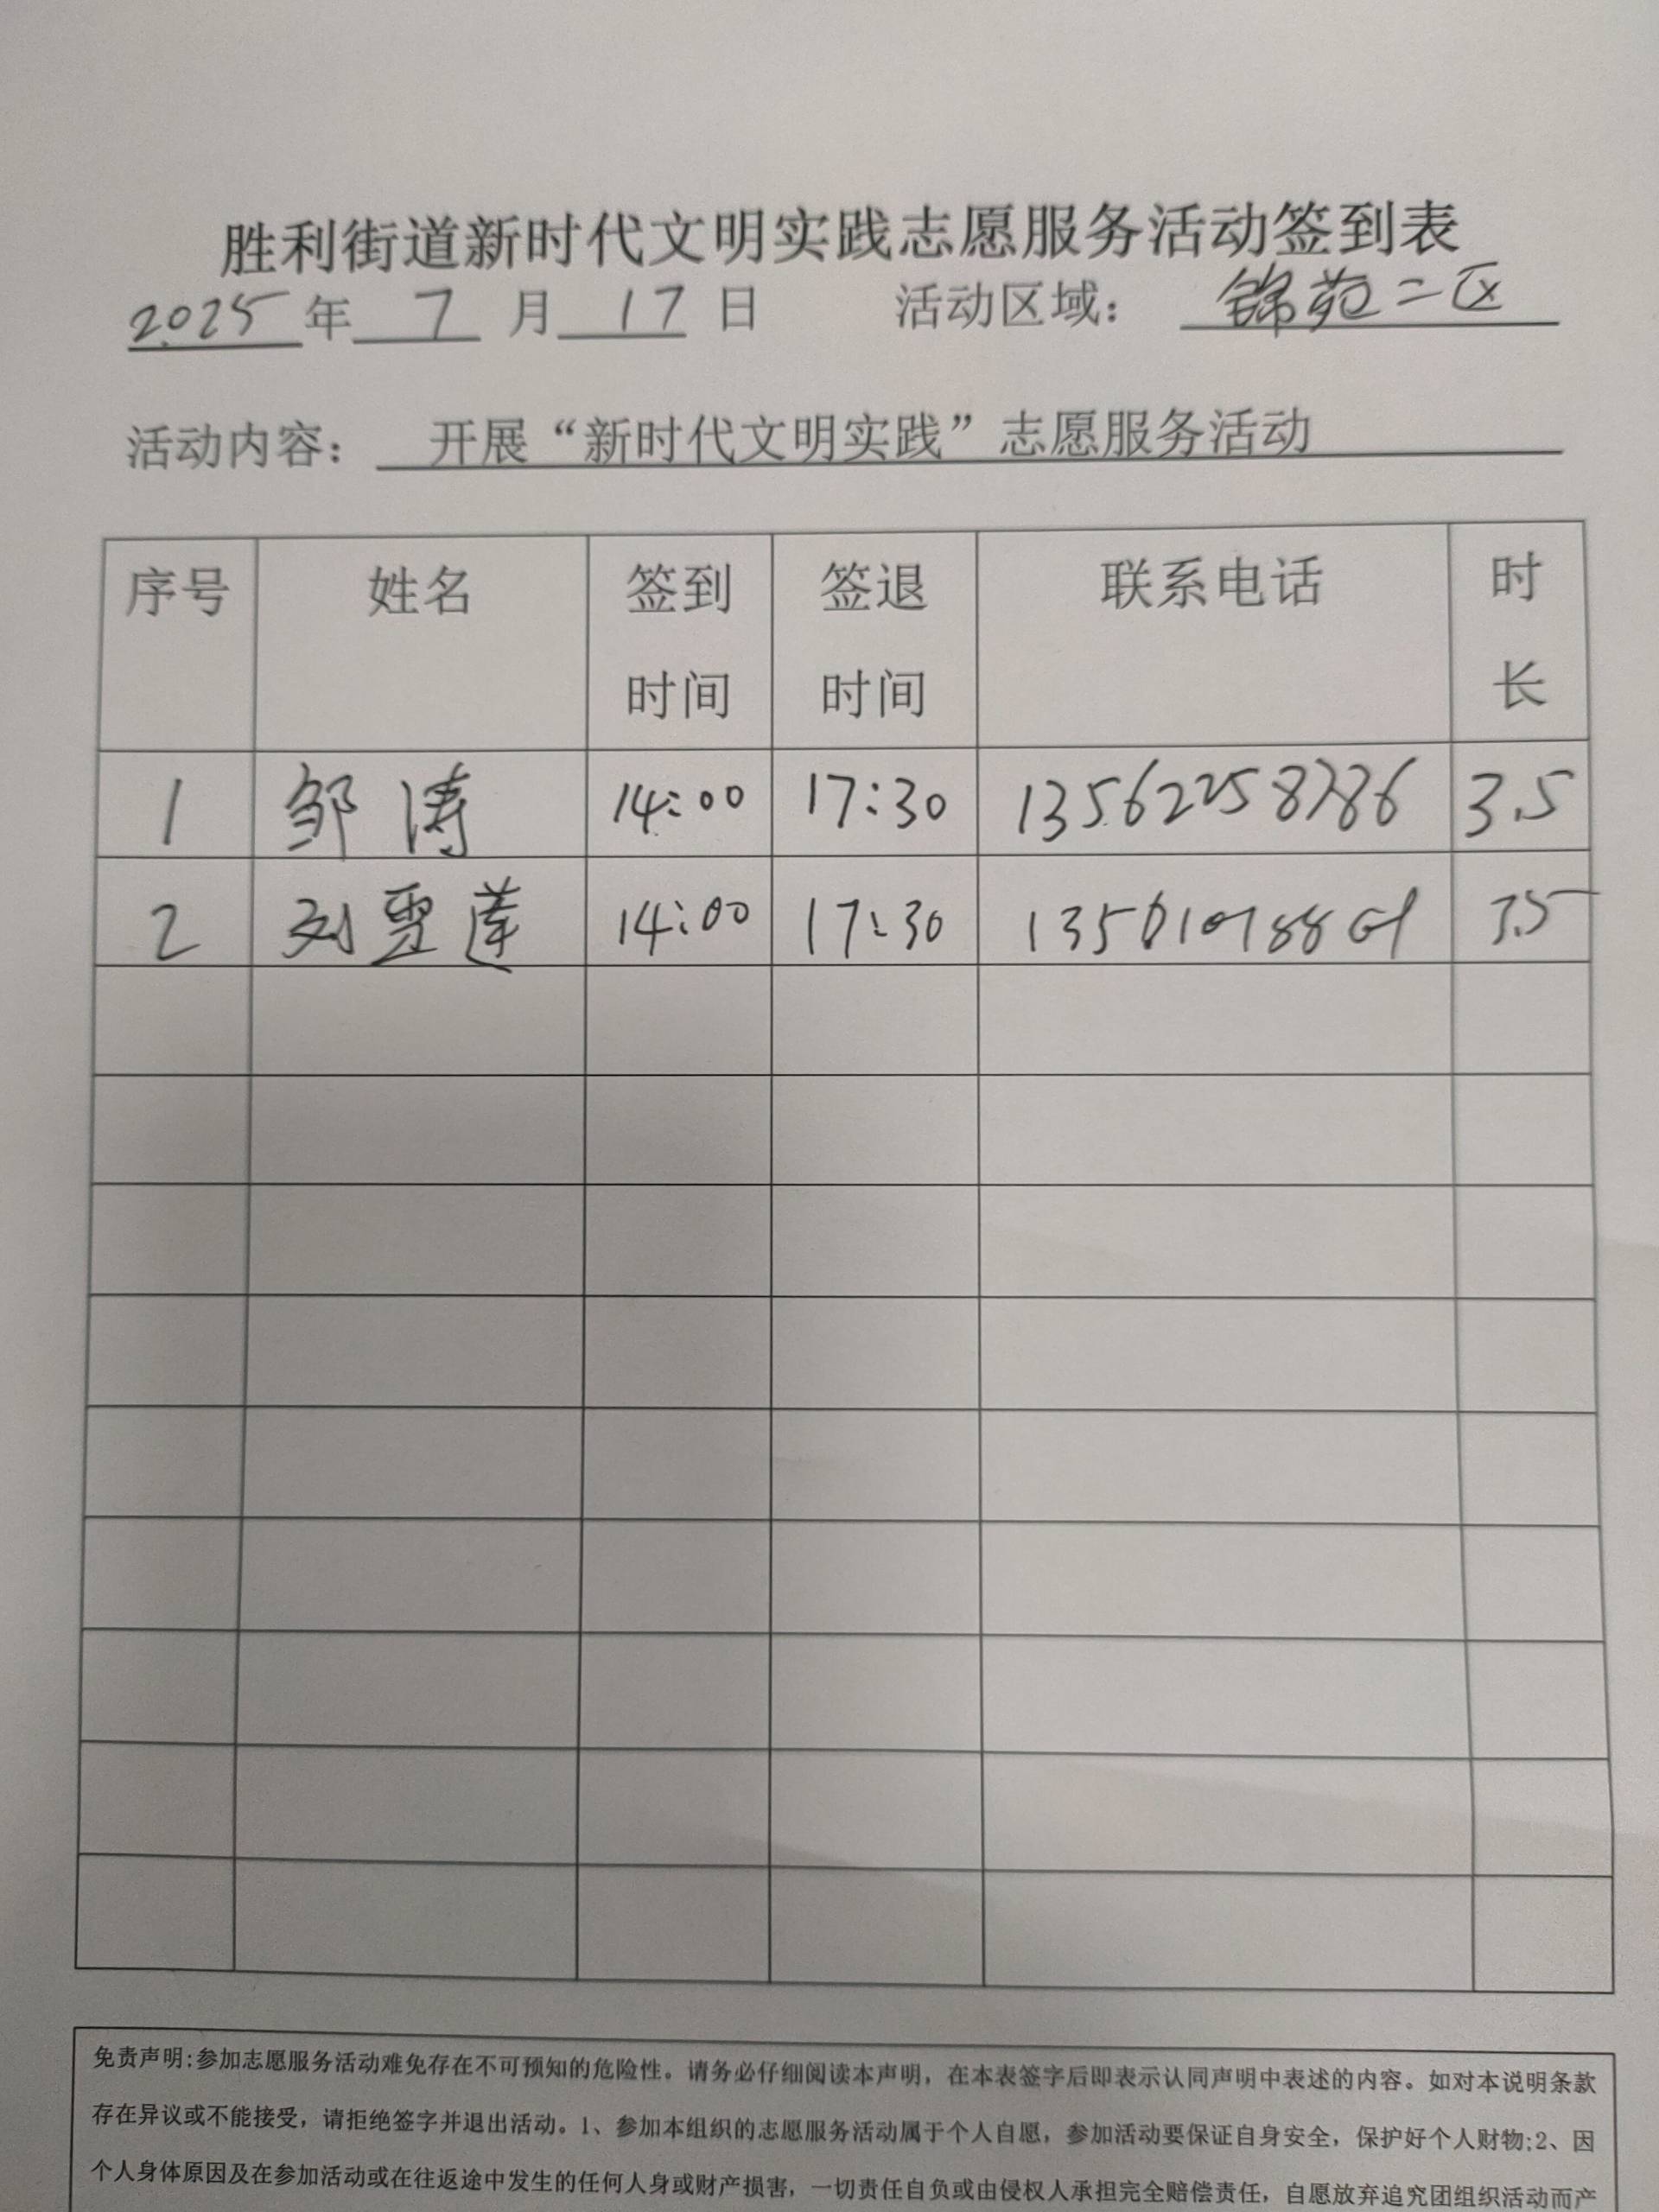 胜利街道新时代文明实践志愿服务活动签到表
2025年 7 月 17 日 活动区域： 锦苑二区
活动内容： 开展“新时代文明实践”志愿服务活动
序号 姓名 签到时间 签退时间 联系电话 时长
1 邹涛 14:00 17:30 13562258786 3.5
2 刘 莲 14:00 17:30 3.5
免责声明:参加志愿服务活动难免存在不可预知的危险性。请务必仔细阅读本声明，在本表签字后即表示认同声明中表述的内容。如对本说明条款
存在异议或不能接受，请拒绝签字并退出活动。1、参加本组织的志愿服务活动属于个人自愿，参加活动要保证自身安全，保护好个人财物;2、因
个人身体原因及在参加活动或在往返途中发生的任何人身或财产损害，一切责任自负或由侵权人承担完全赔偿责任，自愿放弃追究团组织活动而产